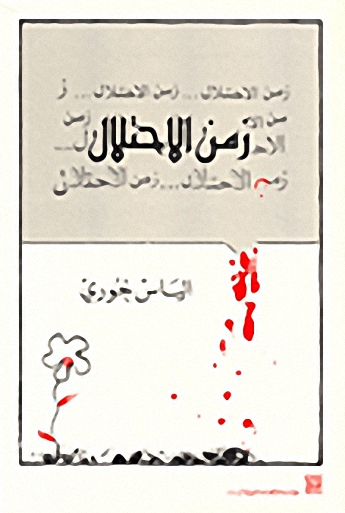 زمن الاحتلال... زمن الاحتلال... ز
من الا
زمن
زمن الاحتلال
الاح
ل...
زمن الاحتلال... زمن الاحتلال
الياس خوري